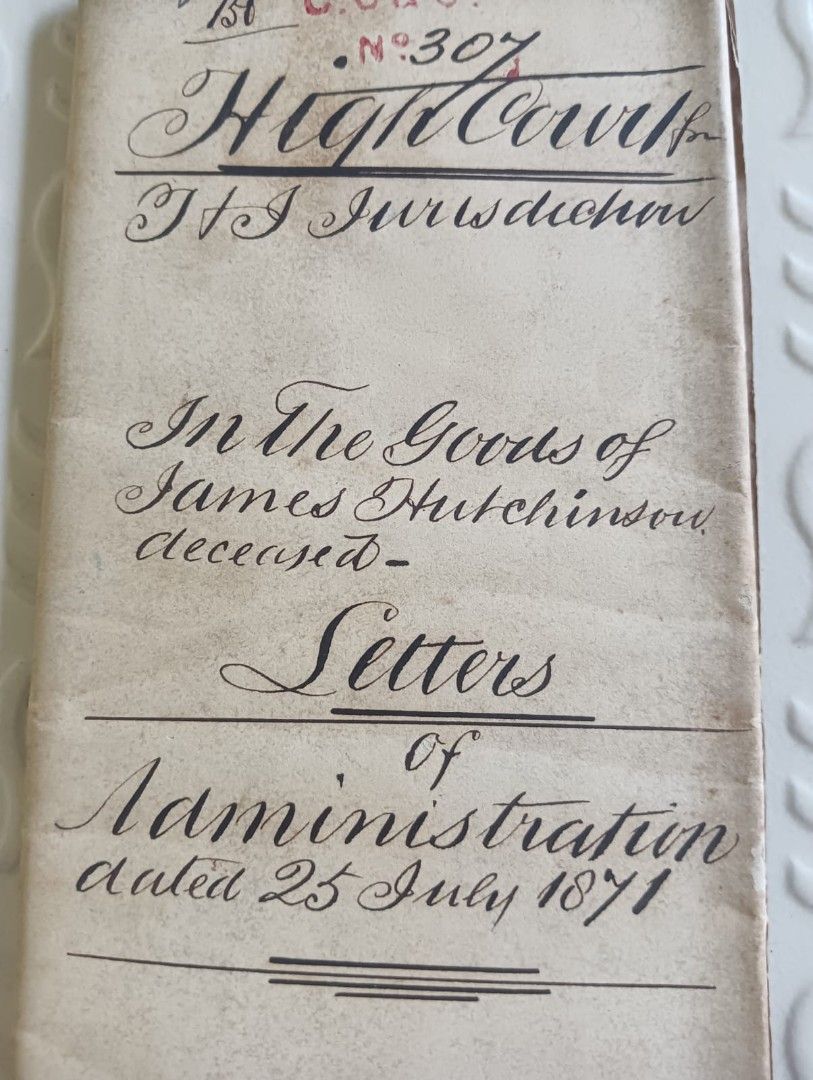 150
Nº 307
High Court for
T & I Jurisdiction
In The Goods of
James Hutchinson
deceased -
Letters
of
Administration
dated 25 July 1871